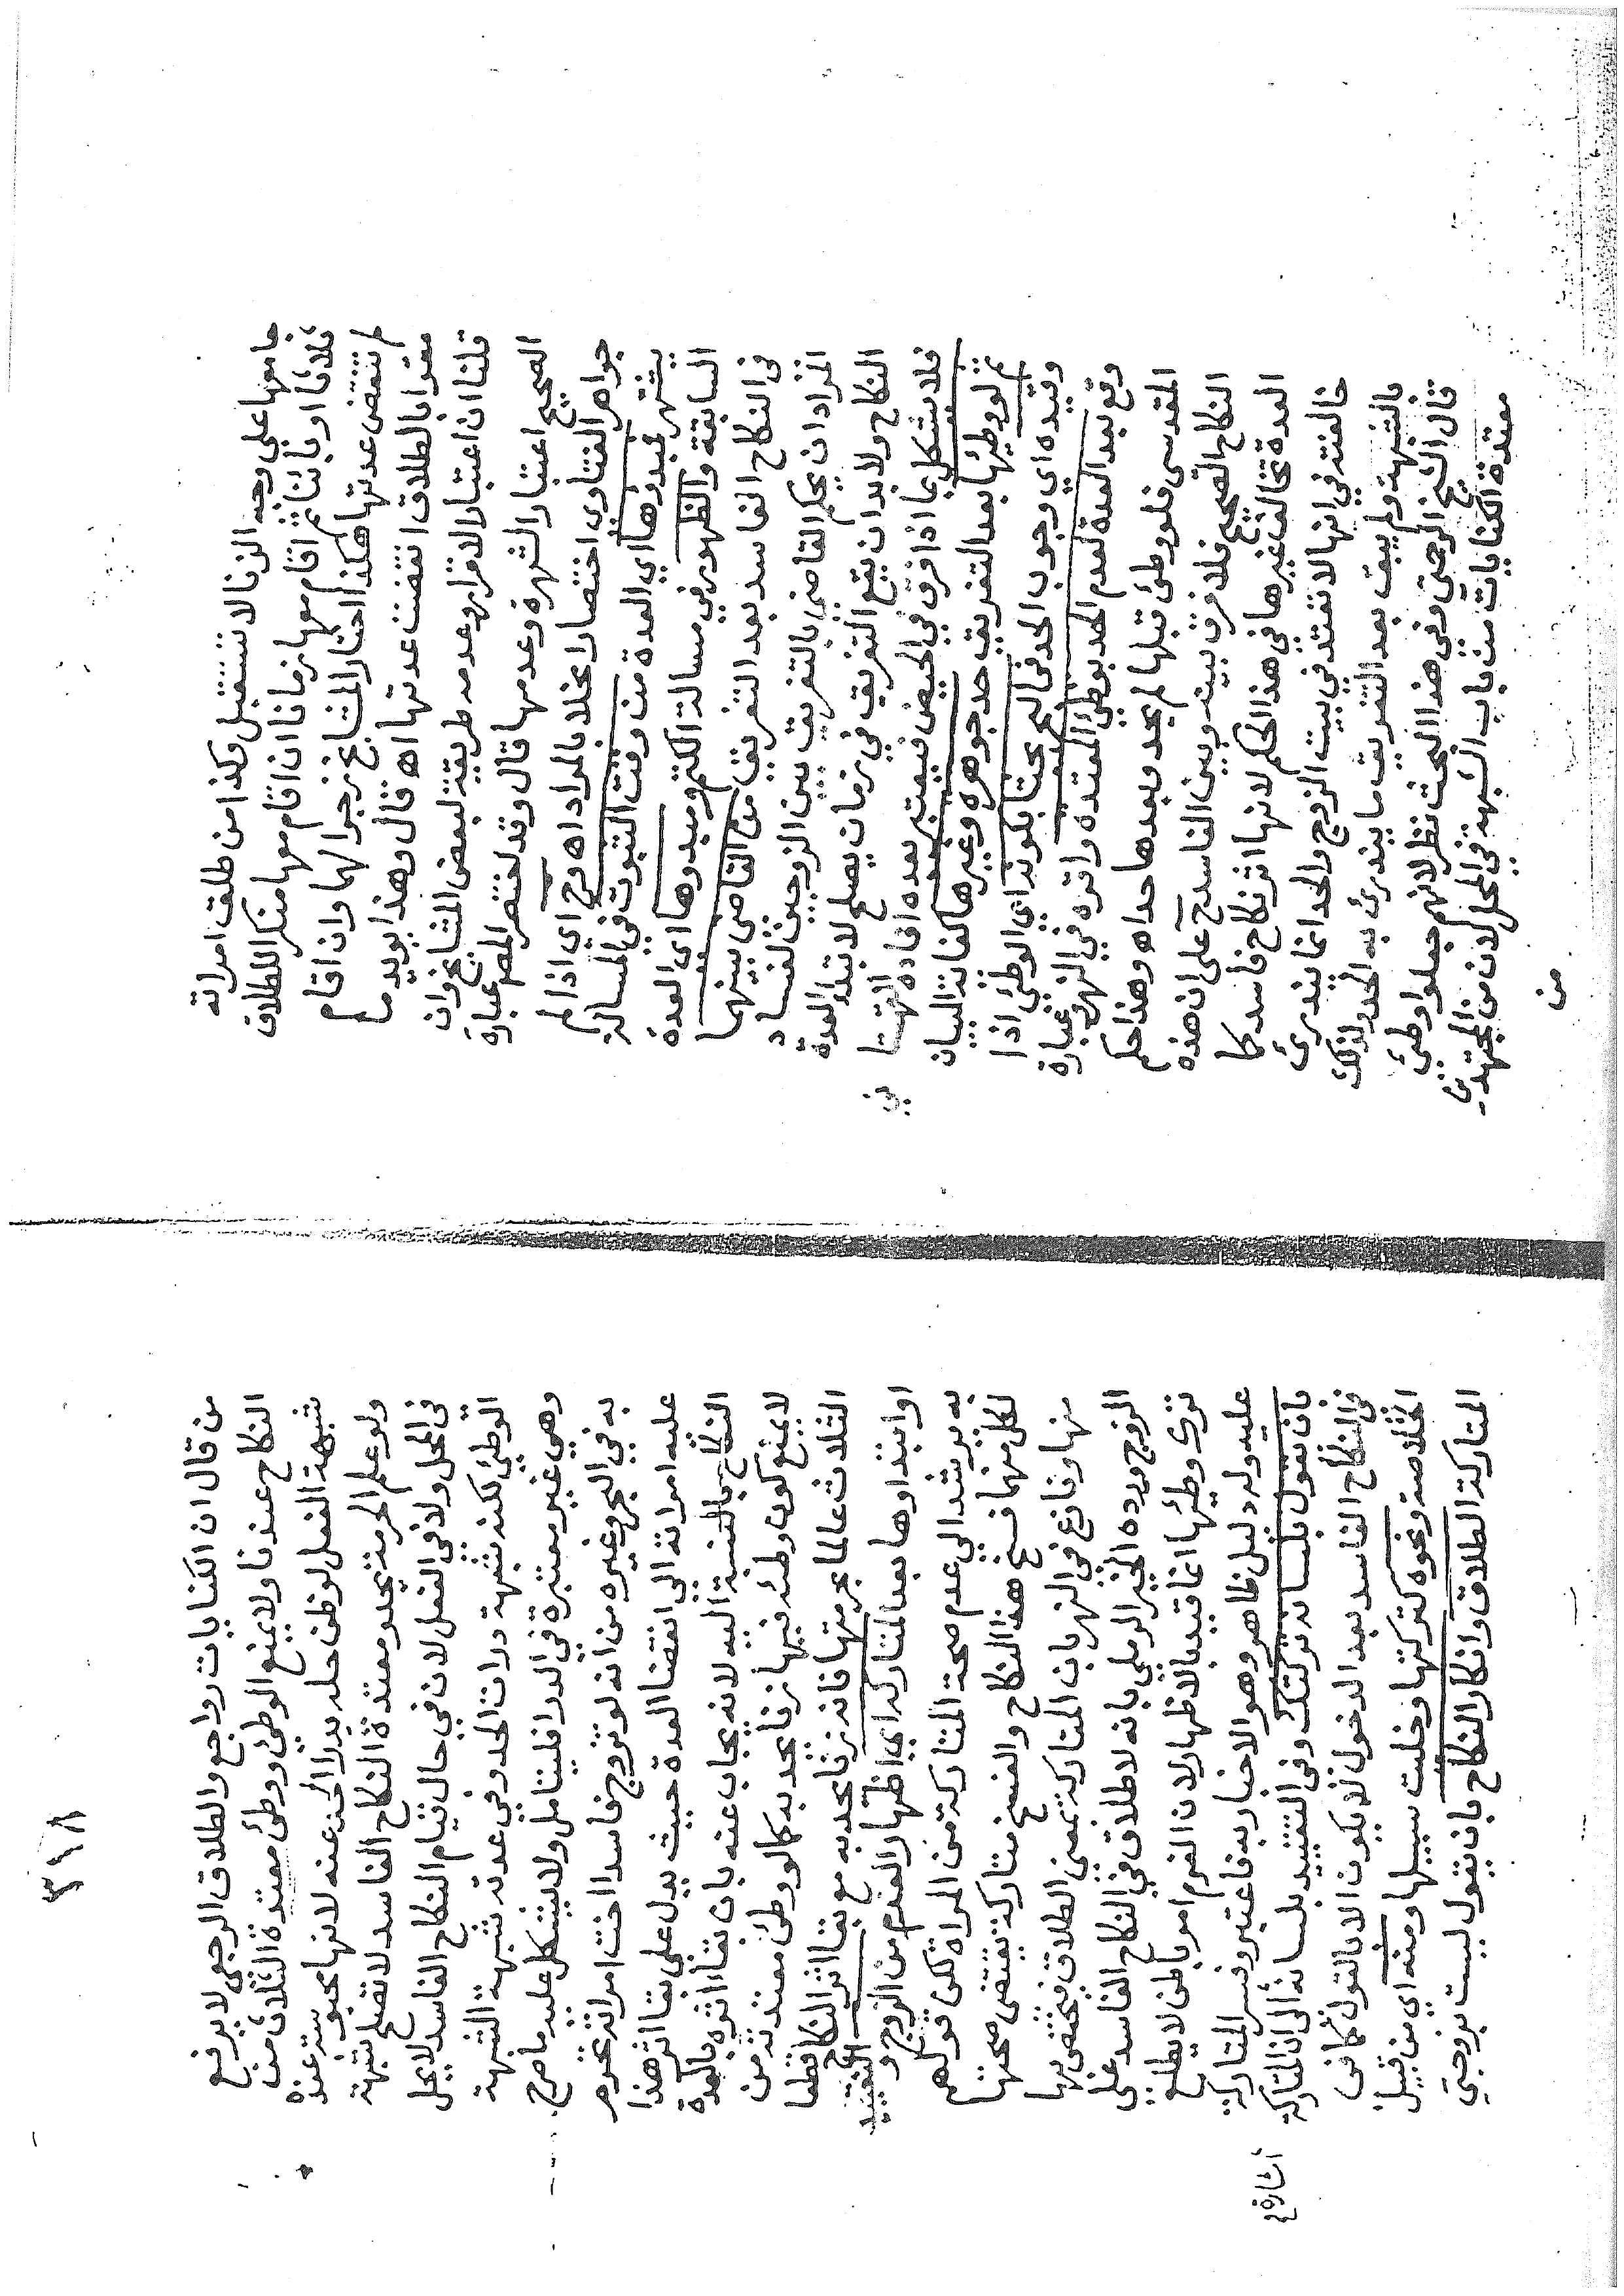 جامعها على وجه الزنا لا تستقبل وكذا من طلق امراته
ثلاثا او بائنا ثم اقام معها زمانا ان اقام معها منكرا للطلاق
لم تنقض عدتها هكذا اختار المشايخ زجرا لهما وان اقام
مقرا بالطلاق انقضت عدتها اه قال وهذا يويد ما
قلنا ان اعتبار الاقرار وعدمه طريقة لبعض المشايخ وان
الصحيح اعتبار الشهرة وعدمها قال وقد اختصر المص عبارة
جواهر الفتاوى اختصارا مخلا بالمراد اه وح اي اذا لم
يشتهر فمبدؤها اي العدة من وقت الثبوت في المسالة
السابقة والظهور في مسالة الكتم ومبدوها اي العدة
في النكاح الفاسد بعد التفريق من القاضي بينهما
المراد ان يحكم القاضي بالتفريق بين الزوجين لفساد
النكاح ولا بد ان يقع التفريق في زمان يصلح لابتداء العدة
فلا يشكل بما اذا فرق في الحيض فيعتبر بعده افاده القهستاني
ثم لو وطيها بعد التفريق حد جوهره وغيرها كغاية البيان
وقيده اي وجوب الحد في البحر بحثا بكونه اي الوطئ اذا
وقع بعد العدة لعدم الحد بوطئ المعتدة واقره في النهر عبارة
المقدسي فلو وطئ قبلها لم يحد وبعدها حد اه وهذا حكم
النكاح الصحيح فلا فرق بينه وبين الفاسد ح على ان هذه
العدة تخالف غيرها في هذا الحكم لانها اثر نكاح فاسد كما
خالفته في انها لا تعتد في بيت الزوج والحد انما يندرئ
بالشبهة ولم يبق بعد التفريق ما يندرئ به الحد ولذلك
قال الشيخ الرحمتي وفي هذا البحث نظر لانهم جعلوا وطئ
معتدة الكنايات من باب الشبهة في المحل لان من المجتهدين
من
٣٩٨
من قال ان الكنايات رواجع والطلاق الرجعي لا يرفع
النكاح عندنا ولا يمنع الوطئ ووطئ معتدة الثلاث من
شبهة الفعل لو ظن حله يدرا الحد عنه لانها محبوسة عنده
ولو علم الحرمة يحد ومعتدة النكاح الفاسد لا تصلح شبهة
في المحل ولا في الفعل لان في حال قيام النكاح الفاسد لا يحل
الوطئ لكنه شبهة درات الحد وفي عدته شبهة الشبهة
وهي غير معتبرة في الدرا فليتامل ولا يشكل عليه ما صرح
به في البحر وغيره من انه لو تزوج فاسدا اخت امراته تحرم
عليه امراته الى انقضا العدة حيث يدل على بقا اثر هذا
النكاح بالنسبة اليه لانه يجاب عنه بان بقا اثره بالعدة
لا يمنع كون وطئه فيها زنا يحد به كما لو وطئ معتدته من
الثلاث عالما بحرمتها فانه زنا يحد به مع بقا اثر النكاح قطعا
او ابتداوها بعد المتاركة اي اظهار العزم من الزوج والتقييد
به يرشد الي عدم صحة المتاركة من المراة لكن قولهم
لكل منهما فسخ هذا النكاح والفسخ متاركة يقتضي صحتها
منها ونازع في النهر بان المتاركة بمعنى الطلاق فيختص بها
الزوج ورده الخير الرملي بانه لا طلاق في النكاح الفاسد على
ترك وطيها انما قيد بالاظهار لان العزم امر باطن لا يطلع
عليه وله دليل ظاهر وهو الاخبار به فاعتبر وفسر المتاركة
بان يقول بلسانه تركتك وفي التقييد بلسانه اشارة الى ان المتاركة
في النكاح الفاسد بعد الدخول لا يكون الا بالقول كما في
الخلاصة ونحوه كتركتها وخليت سبيلها ومنه اي من قبيل
المتاركة الطلاق وانكار النكاح بان يقول ليست بزوجتي